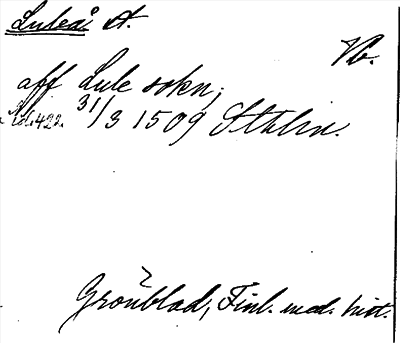 Luleå st.
Vb.
aff Lule sokn;
31/3 1509 Sthlm.
Grönblad, Finl. med. hist.